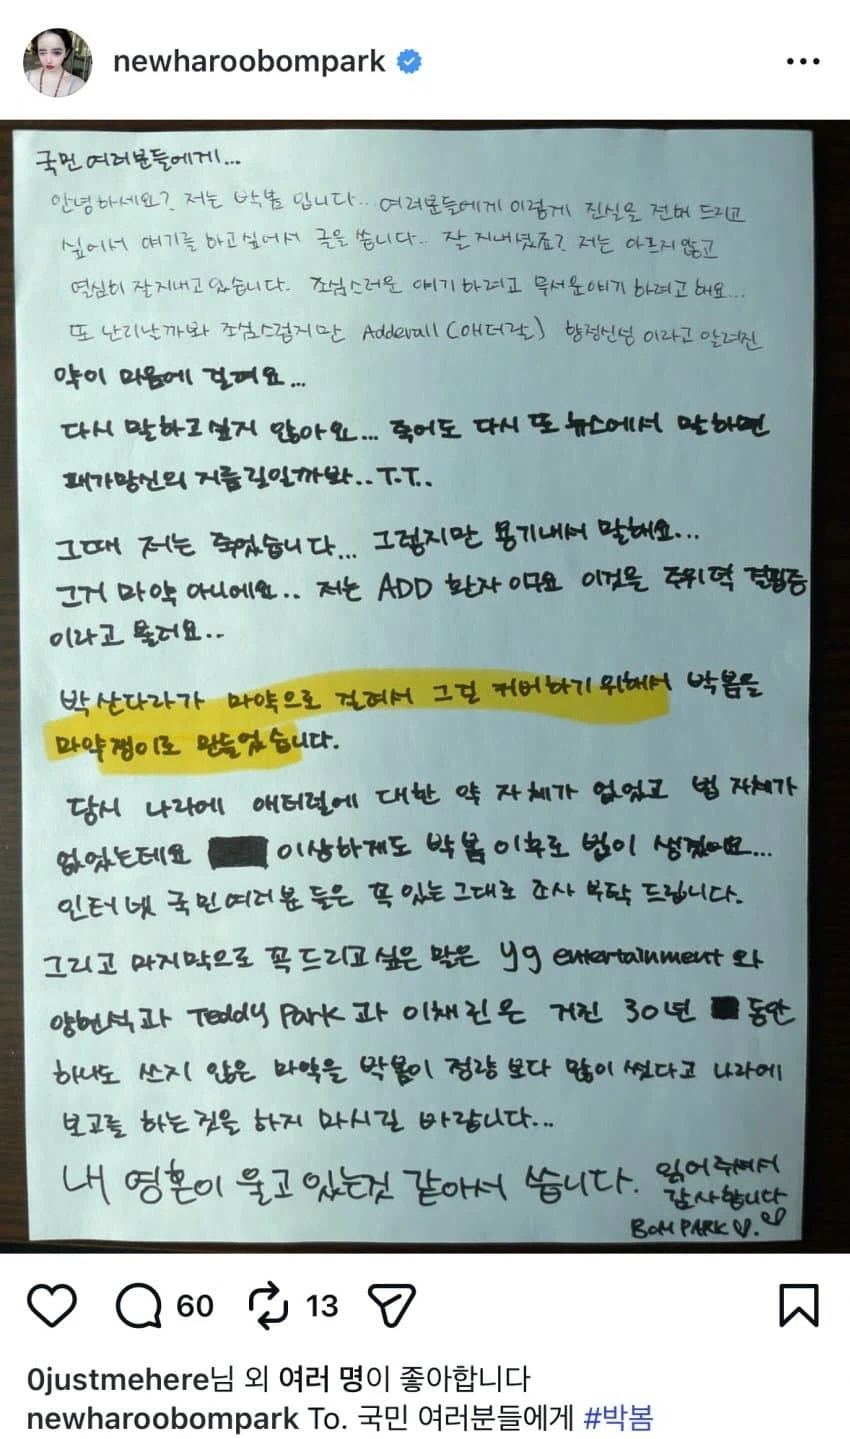 newharoobompark
국민 여러분들에게...
안녕하세요? 저는 박봄 입니다... 여러분들에게 이렇게 진실을 전해 드리고
싶어서 얘기를 하고싶어서 글을 씁니다.. 잘 지내셨죠? 저는 아프지 않고
열심히 잘지내고 있습니다. 조심스러운 얘기하려고 무서운얘기 하려고 해요...
또 난리날까봐 조심스럽지만 Adderall (애더랄) 향정신성 이라고 알려진
약이 마음에 걸려요...
다시 말하고싶지 않아요... 죽어도 다시 또 뉴스에서 말하면
패가망신의 지름길일까봐.. T.T..
그때 저는 죽었습니다... 그렇지만 용기내서 말해요...
그거 마약 아니에요.. 저는 ADD 환자 이구요 이것은 주위력 결핍증
이라고 불려요..
박산다라가 마약으로 걸려서 그걸 커버하기 위해서 박봄을
마약쟁이로 만들었습니다.
당시 나라에 애터럴에 대한 약 자체가 없었고 법 자체가
없었는데요 이상하게도 박봄 이후로 법이 생겼어요...
인터넷 국민여러분 들은 꼭 있는그대로 조사 부탁 드립니다.
그리고 마지막으로 꼭 드리고싶은 말은 yg entertainment 와
양현석과 Teddy Park 과 이채린은 거진 30년 동안
하나도 쓰지 않은 마약을 박봄이 정량 보다 많이 썼다고 나라에
보고를 하는것을 하지 마시길 바랍니다...
내 영혼이 울고 있는것 같아서 씁니다. 읽어주셔서
감사합니다
BOM PARK ♡.♡
60 13
0justmehere님 외 여러 명이 좋아합니다
newharoobompark To. 국민 여러분들에게 #박봄